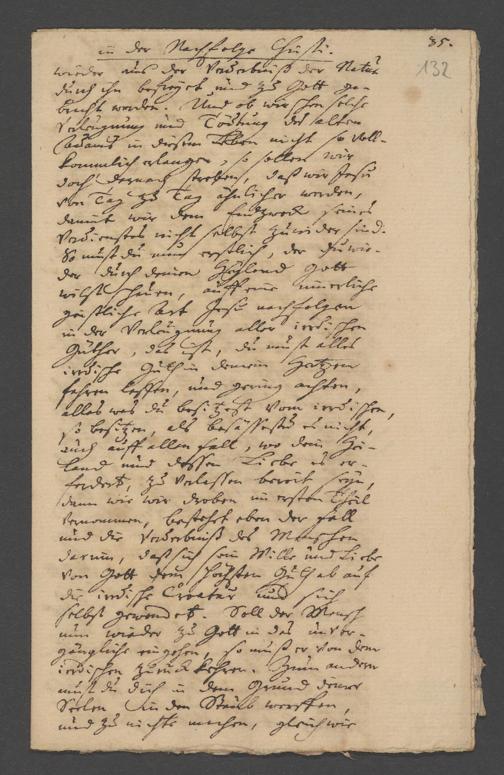 in der Nachfolge Christi.
85.
132
wieder aus der Verderbniß der Natur
durch ihn befreyet und zu Gott ge-
bracht werden. Und ob wir schon solche
Verleugnung und Tödtung des alten
Adams in diesem Leben nicht so voll-
kommlich erlangen, so sollen wir
doch darnach streben, daß wir Jesu
von Tag zu Tag ähnlicher werden,
damit wir dem Endzweck seines
Verdienstes nicht selbst zuwider sind.
So must du nun erstlich, der du wie-
der durch deinen Heyland Gott
wilst schauen, auff eine innerliche
geistliche Art Jesu nachfolgen
in der Verleugnung aller irrdischen
Güther, das ist, du must alles
irrdische Guth in deinem Hertzen
fahren lassen, und gering achten,
alles was du besitzest vom irrdischen,
so besitzen, als besässestu es nicht,
auch auff allen fall, wo dein Hei-
land und dessen Liebe es er-
fordert, zu verlassen bereit seyn,
dann wie wir droben im ersten Theil
vernommen, bestehet eben der fall
und die Verderbniß des Menschen
darinn, daß sich sein Wille und Liebe
von Gott dem höchsten Guth ab auf
die irrdische Creatur und sich
selbst gewendet. Soll der Mensch
nun wieder zu Gott in das unver-
gängliche eingehen, so muß er von dem
irrdischen zurück kehren. Zum andern
must du dich in dem Grund deiner
Seelen in den Staub werffen,
und zu nichte machen, gleich wie